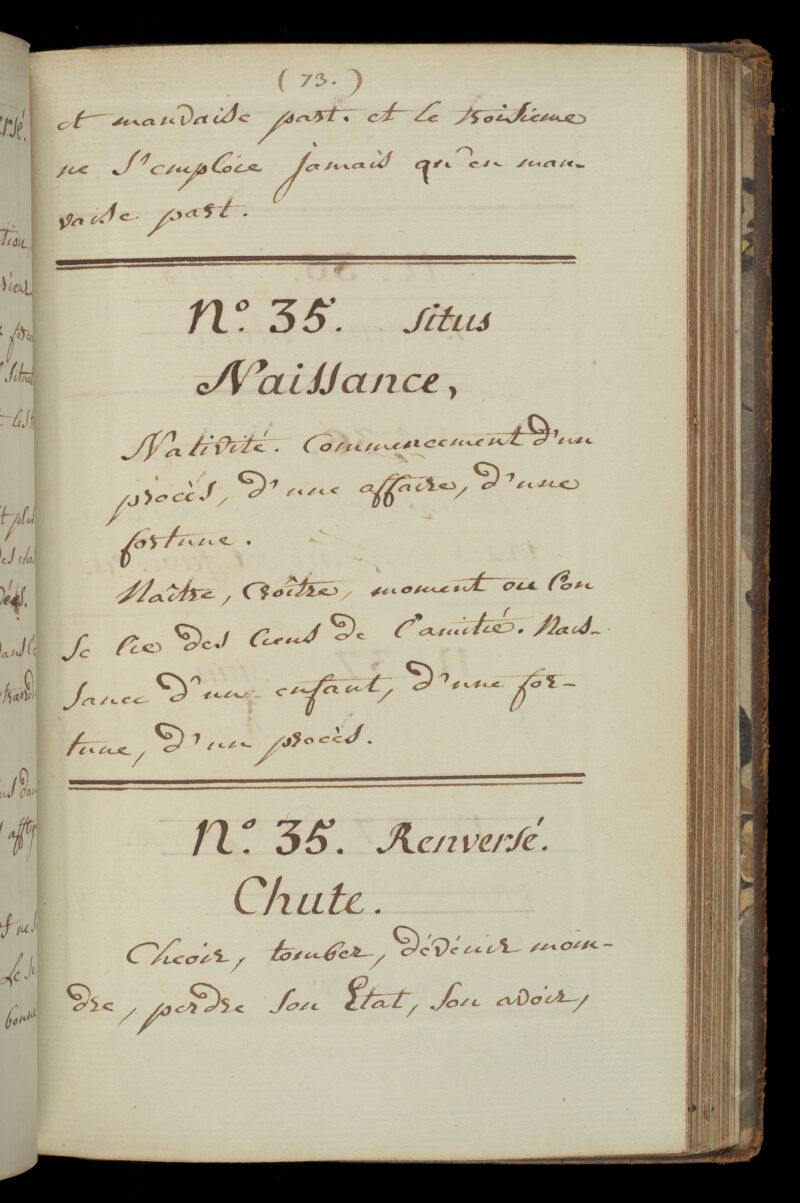 ( 73. )
et mauvaise part. et le troisieme
ne s'emploie jamais qu'en mau-
vaise part.
N.º 35. situs
Naissance,
Nativité. Commencement d'un
procès, d'une affaire, d'une
fortune.
Naître, croître, moment ou l'on
se lie des liens de l'amitié. Nais-
sance d'un enfant, d'une for-
tune, d'un procès.
N.º 35. Renversé.
Chute.
Cheoir, tomber, dévénir moin-
dre, perdre son Etat, son avoir,